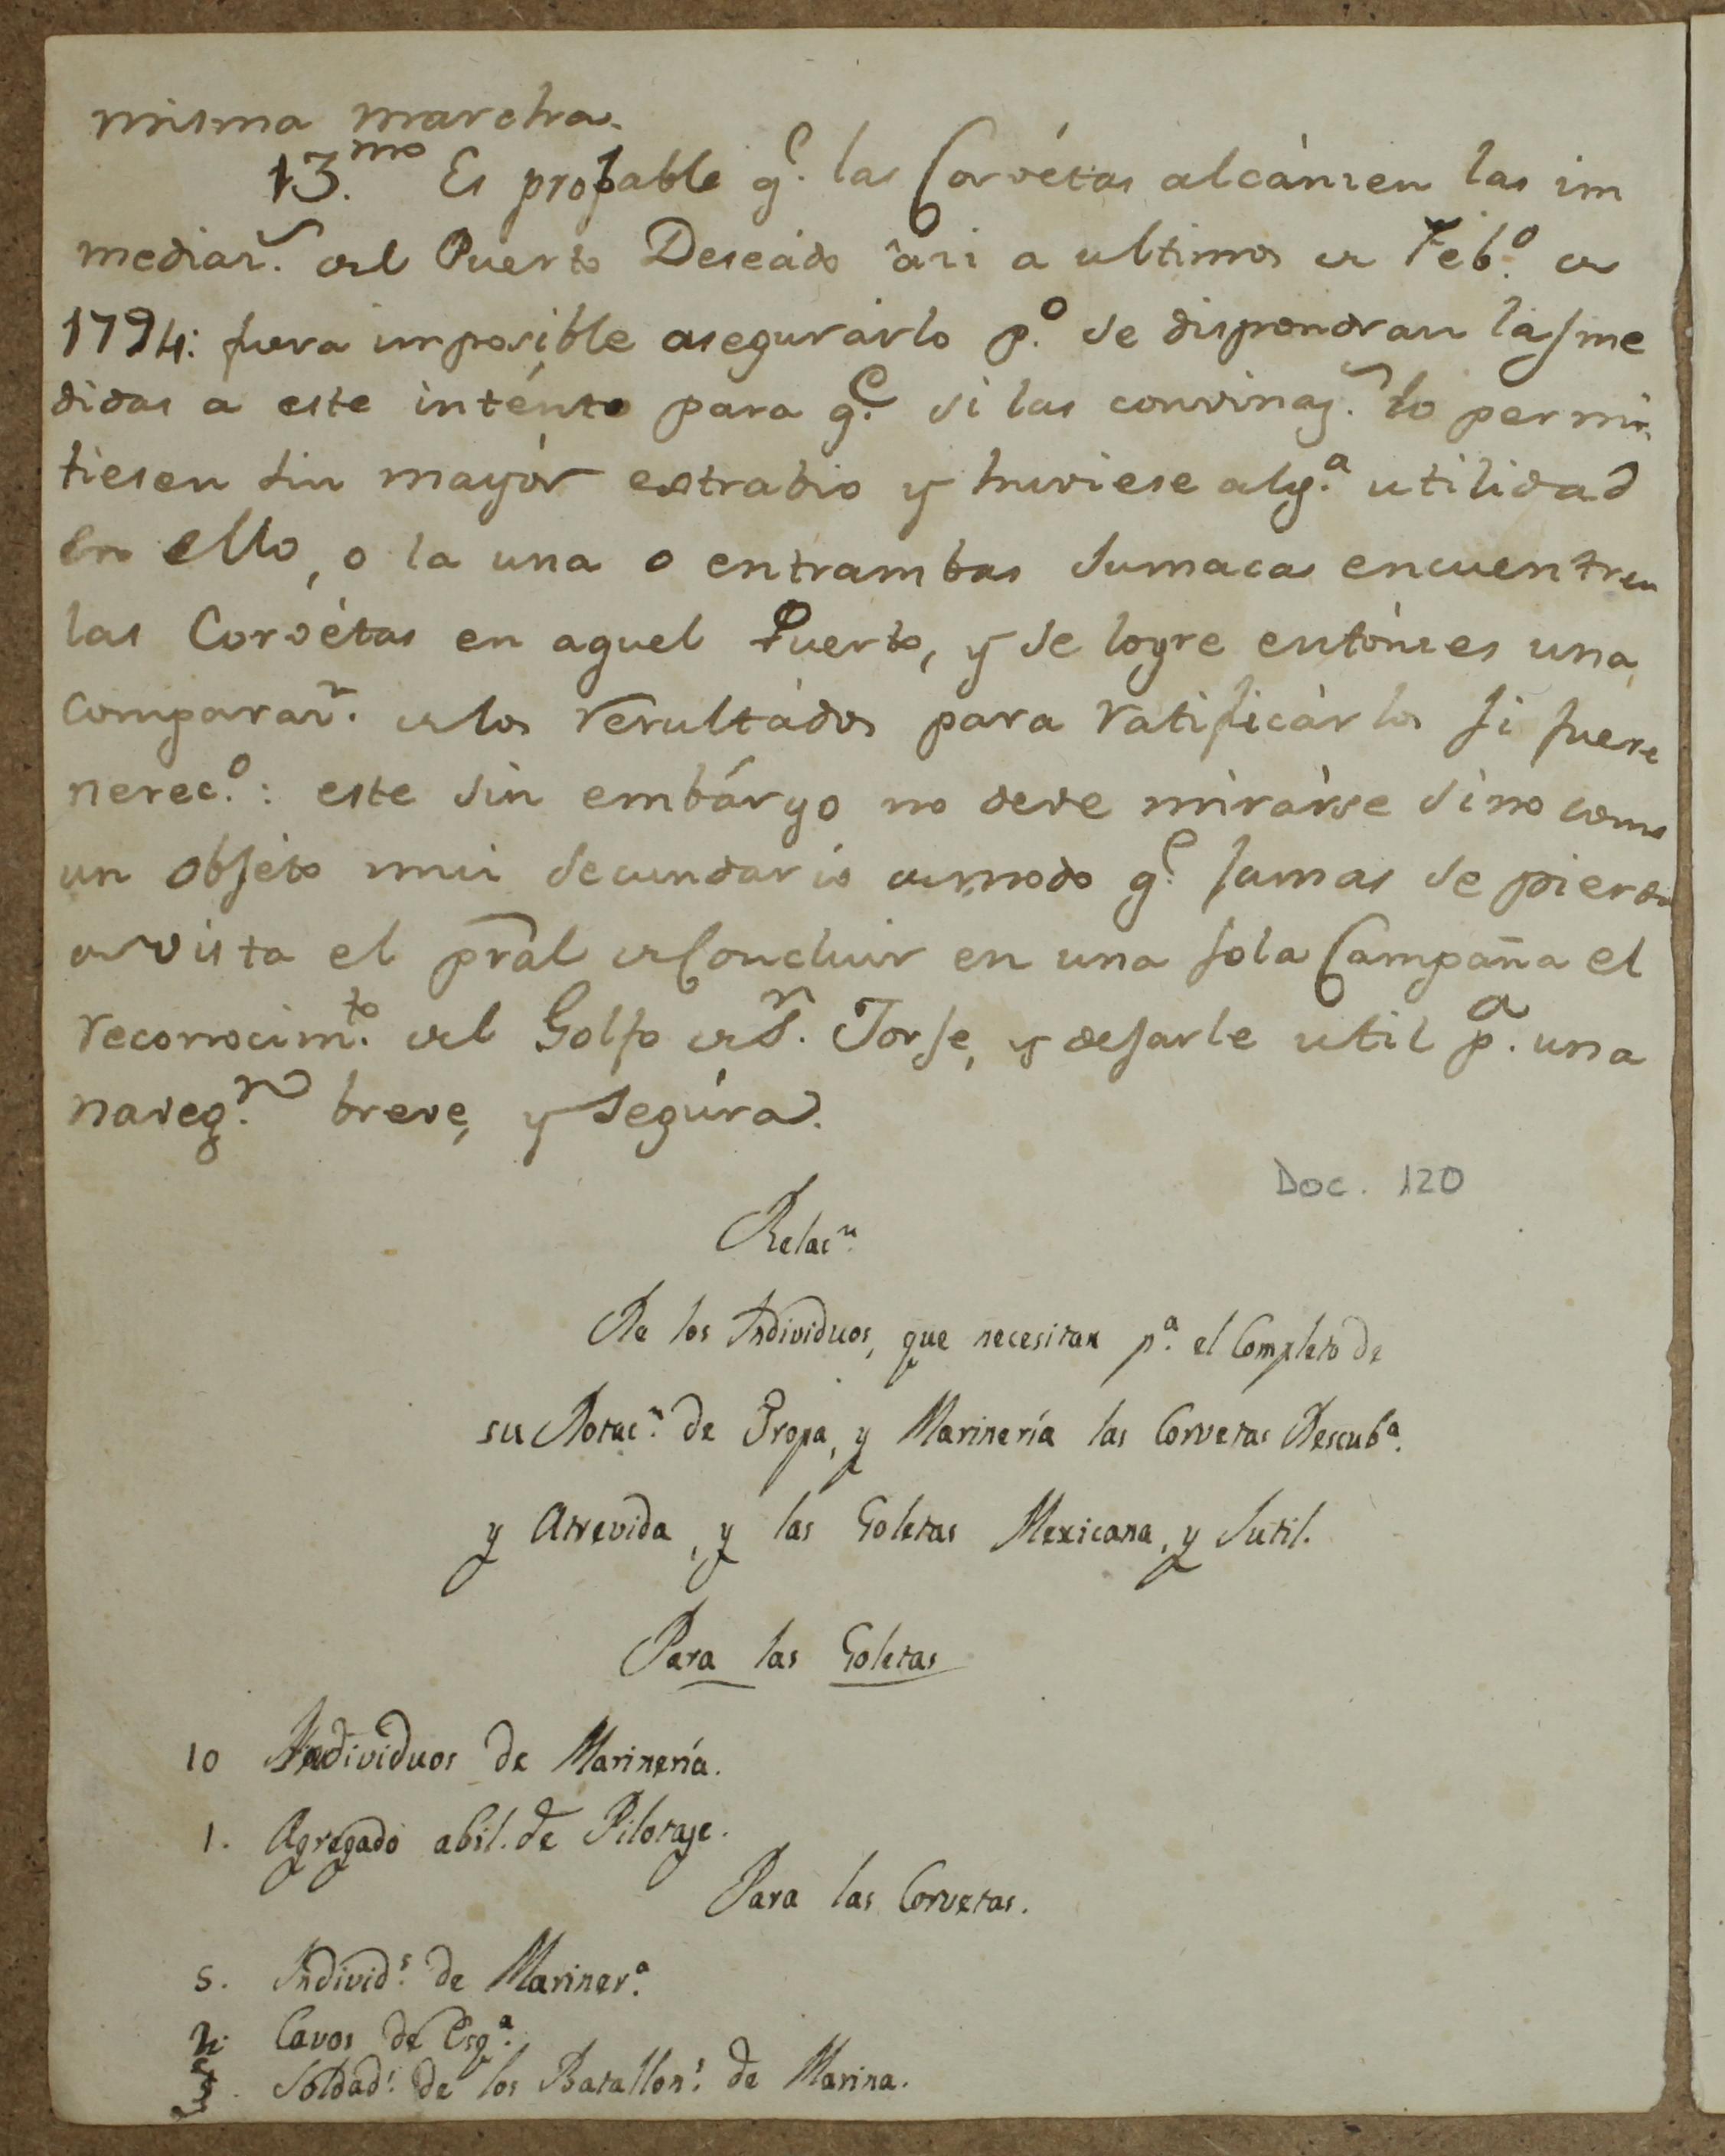 misma marcha.
13.mo Es probable q.e las Corvétas alcáncen las im
mediac.s del Puerto Deseádo áci a ultimos de Feb.o de
1794: fuera imposible asegurárlo p.o se dispondran las me
didas a este inténto para q.e si las convinaz.s lo permi
tiesen sin mayór extrabio y huviese alg.a utilidad
en ello, o la una o entrambas sumacas encuentren
las Corvétas en aquel Puerto, y se logre entónces una
comparac.n de los resultádos para ratificárlos si fuere
neces.o: este sin embárgo no deve mirárse sino como
un objéto mui secundario de modo q.e jamas se pierda
de vista el pral de Concluir en una sola Campaña el
reconocim.to del Golfo de S.n Jorje, y dejarle util p.a una
naveg.n breve, y segúra.
Doc. 120
Relac.n
De los Individuos, que necesitan p.a el Completo de
su Dotac.n de Tropa, y Marinería las Corvetas Descub.a
y Atrevida, y las Goletas Mexicana, y Sutil.
Para las Goletas
10 Individuos de Marinería.
1. Agregado abil. de Pilotaje.
Para las Corvetas.
5. Individ.s de Mariner.a
Cavos de Esq.a
Soldad.s de los Batallon.s de Marina.